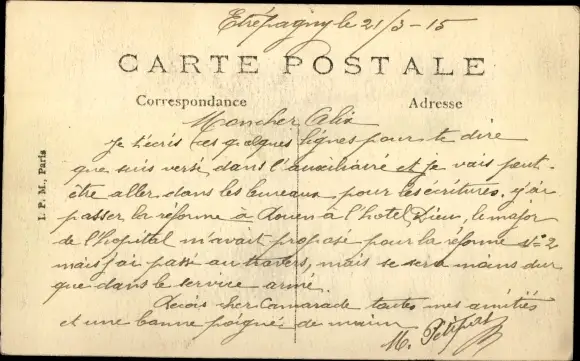 Etrépagny le 21/3-15
CARTE POSTALE
Correspondance Adresse
Mon cher Alix
Je t'écris ces quelques lignes pour te dire
que suis versé dans l'auxiliaire et je vais peut-
être aller dans les bureaux pour les écritures. j'ai
passer la réforme à Rouen à l'hotel Dieu, le major
de l'hopital m'avait proposé pour la réforme N°=2
mais j'ai passé au travers, mais se sera moins dur
que dans le service armé.
Recois cher Camarade toutes mes amitiés
et une bonne poigné de main
M. Petitpas
I. P. M., Paris